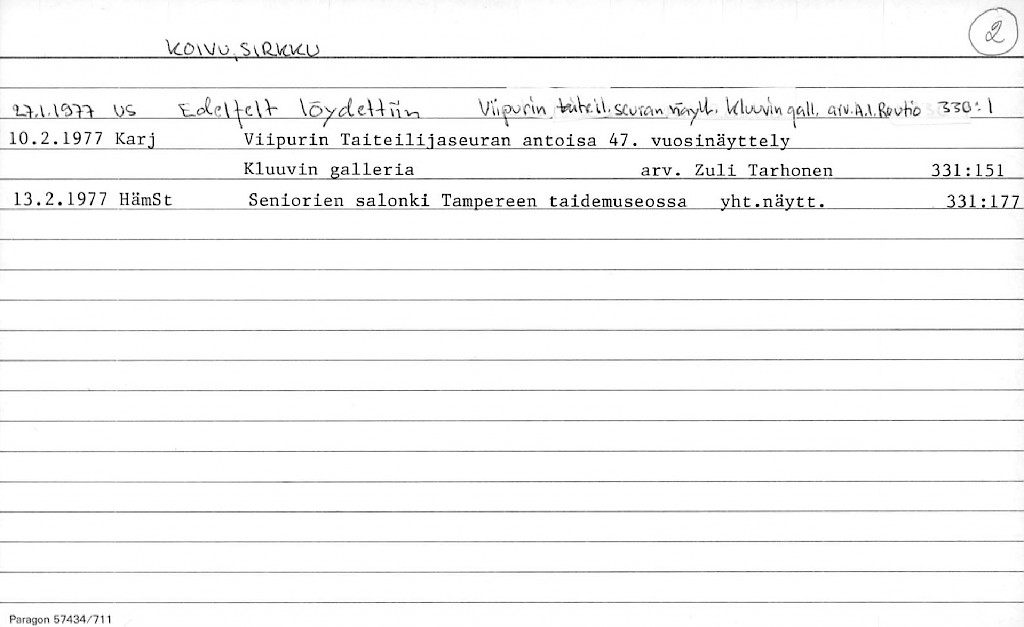 2
KOIVU, SIRKKU
27.1.1977 US Edelfelt löydettiin Viipurin taiteil. seuran näytt. Kluuvin gall. arv. A.I. Routio 330:1
10.2.1977 Karj Viipurin Taiteilijaseuran antoisa 47. vuosinäyttely
Kluuvin galleria arv. Zuli Tarhonen 331:151
13.2.1977 HämSt Seniorien salonki Tampereen taidemuseossa yht.näytt. 331:177
Paragon 57434/711